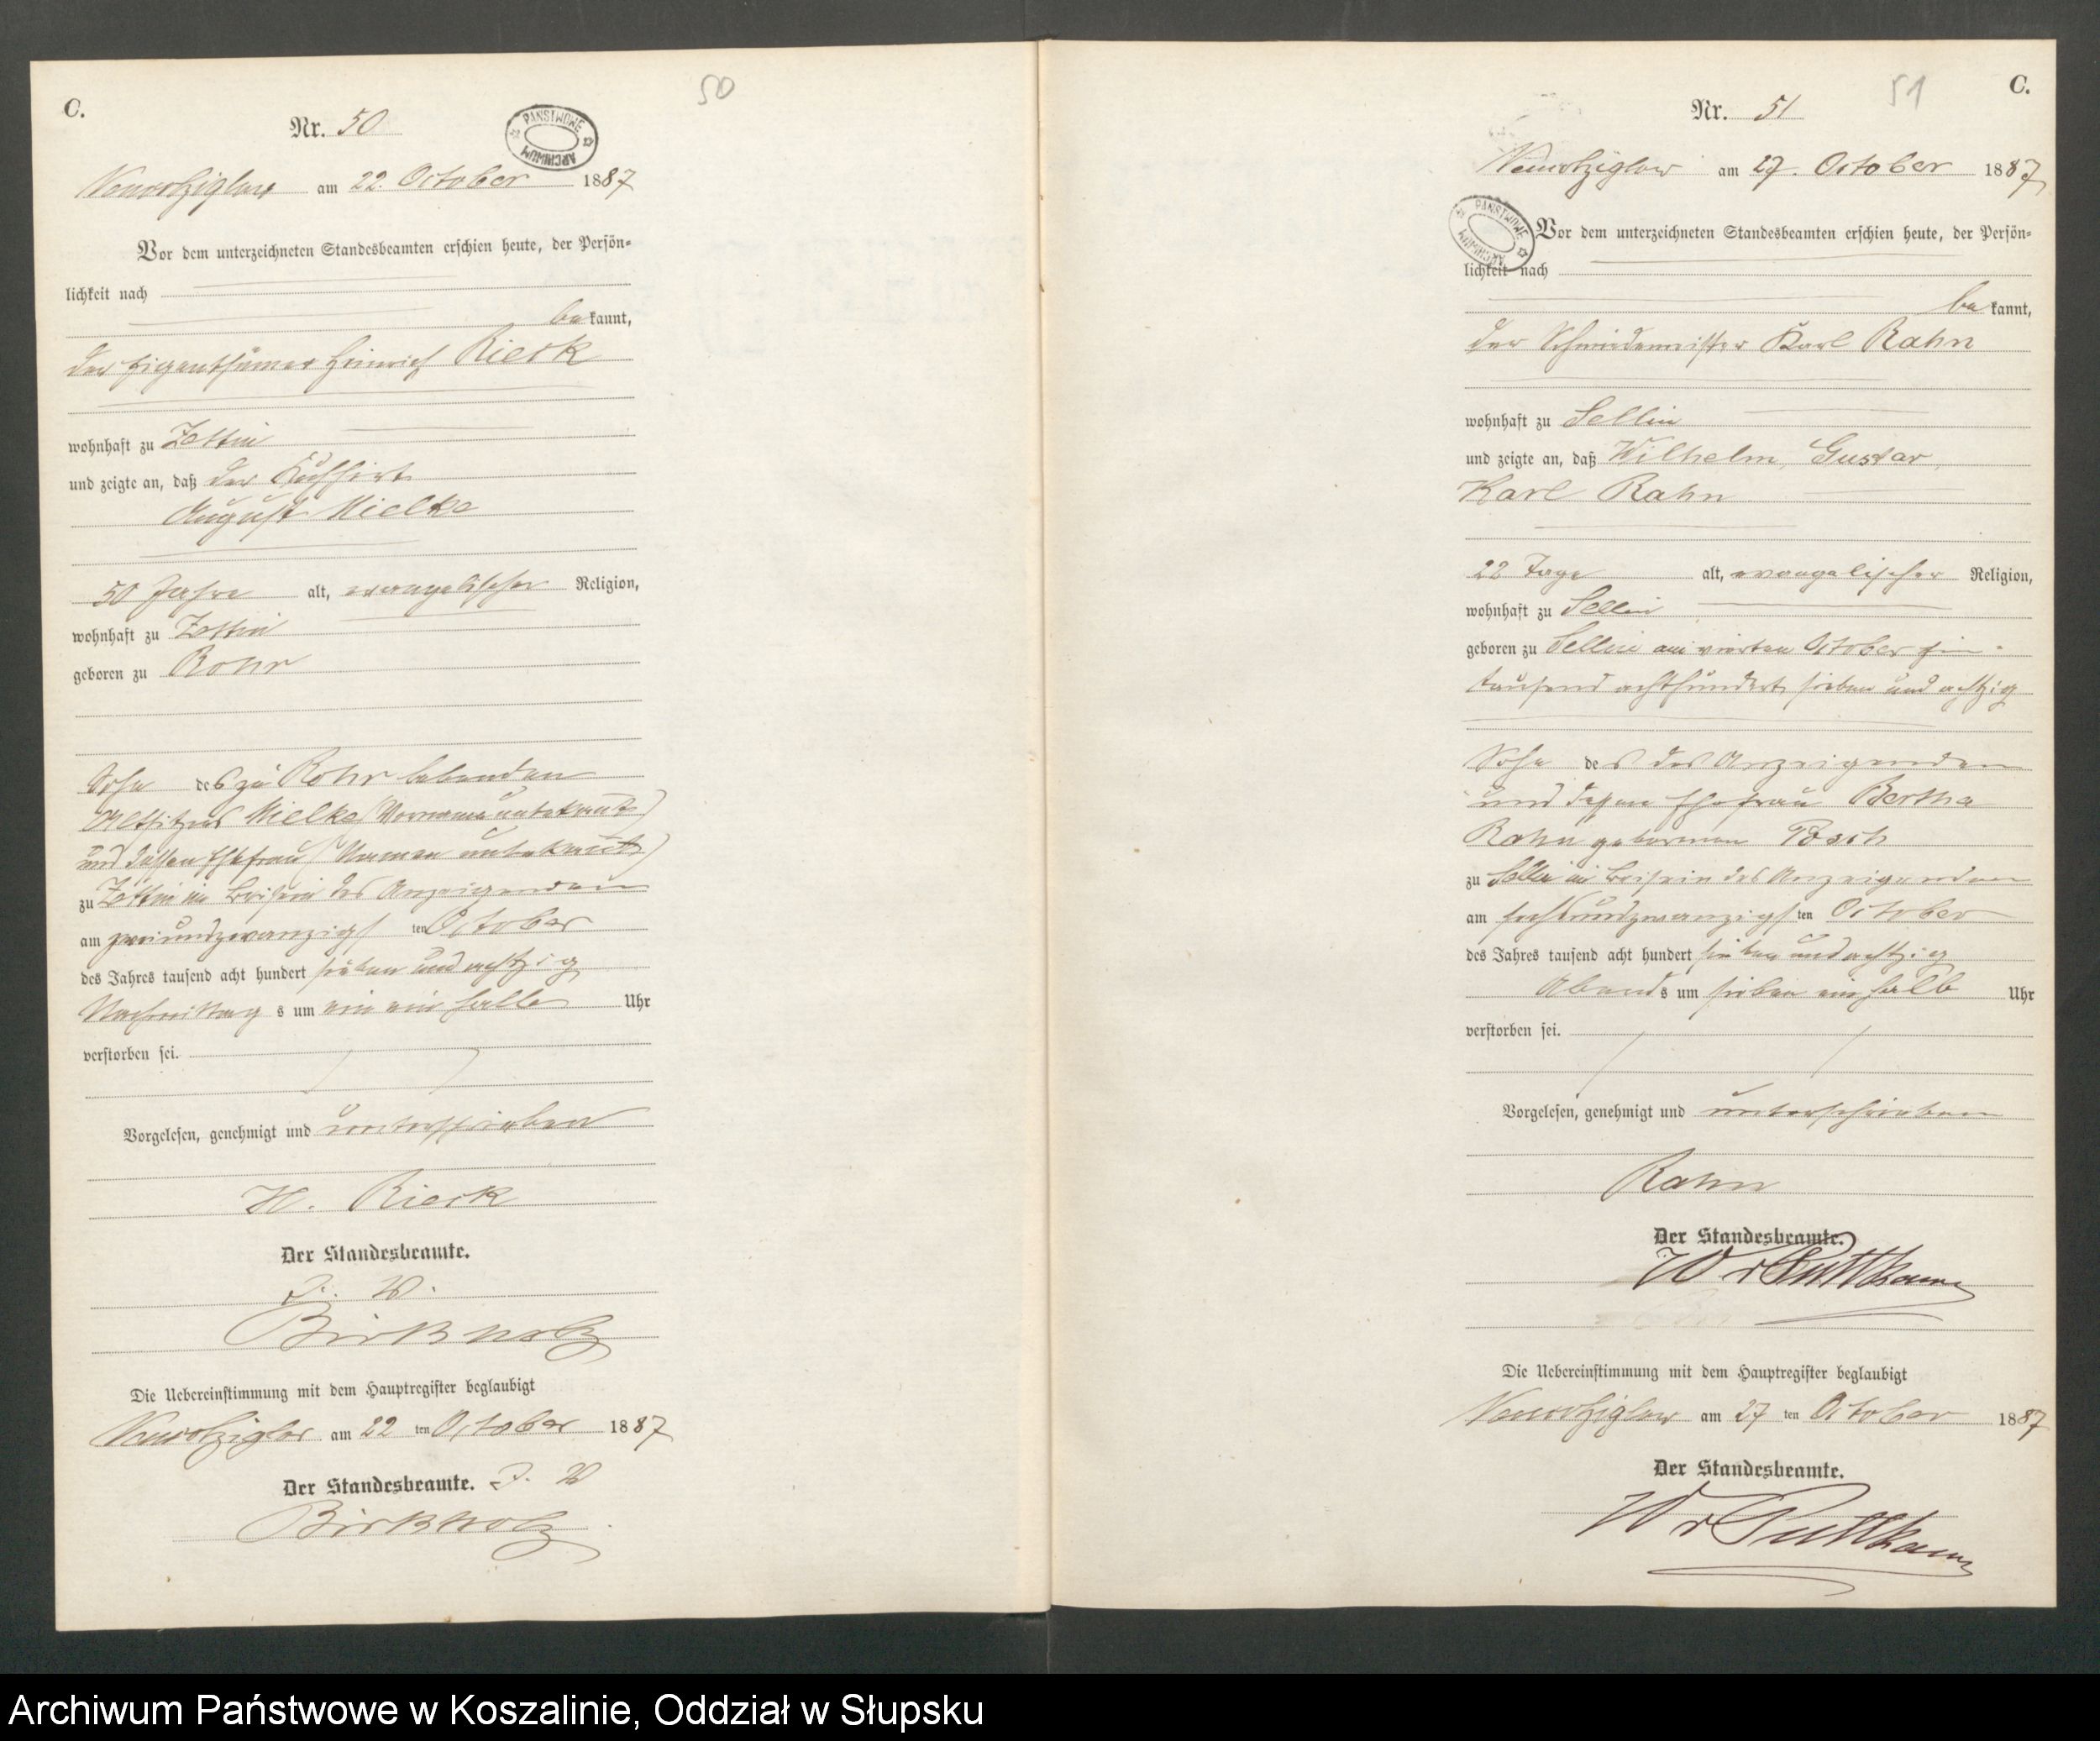 C.
50
Nr. 50
PAŃSTWOWE ARCHIWUM
Neuwotziglow am 22. October 1887
Vor dem unterzeichneten Standesbeamten erschien heute, der Persön-
lichkeit nach
be kannt,
der Eigenthümer Heinrich Rieck
wohnhaft zu Zettin
und zeigte an, daß der Kuhhirt
August Mielke
50 Jahre alt, evangelischer Religion,
wohnhaft zu Zettin
geboren zu Rohr
Sohn des zu Rohr lebenden
Altsitzers Mielke (Vorname unbekannt)
und dessen Ehefrau (Namen unbekannt)
zu Zettin im Beisein des Anzeigenden
am zweiundzwanzigs ten October
des Jahres tausend acht hundert sieben und achtzig
Nachmittag s um ein ein halb Uhr
verstorben sei.
Vorgelesen, genehmigt und unterschrieben
H. Rieck
Der Standesbeamte.
J. V.
Birkholz
Die Uebereinstimmung mit dem Hauptregister beglaubigt
Neuwotziglow am 22 ten October 1887
Der Standesbeamte. J. V
Birkholz
C.
51
Nr. 51
PAŃSTWOWE ARCHIWUM
Neuwotziglow am 27. October 1887
Vor dem unterzeichneten Standesbeamten erschien heute, der Persön-
lichkeit nach
be kannt,
der Schmiedemeister Karl Rahn
wohnhaft zu Sellin
und zeigte an, daß Wilhelm, Gustav,
Karl Rahn
22 Tage alt, evangelischer Religion,
wohnhaft zu Sellin
geboren zu Sellin am vierten October ein-
tausend achthundert sieben und achtzig
Sohn des des Anzeigenden
und dessen Ehefrau Bertha
Rahn geborenen Pösch
zu Sellin im Beisein des Anzeigenden
am sechsundzwanzigs ten October
des Jahres tausend acht hundert sieben und achtzig
Abend s um sieben ein halb Uhr
verstorben sei.
Vorgelesen, genehmigt und unterschrieben
Rahn
Der Standesbeamte.
W v Puttkamer
Die Uebereinstimmung mit dem Hauptregister beglaubigt
Neuwotziglow am 27 ten October 1887
Der Standesbeamte.
W v Puttkamer
Archiwum Państwowe w Koszalinie, Oddział w Słupsku